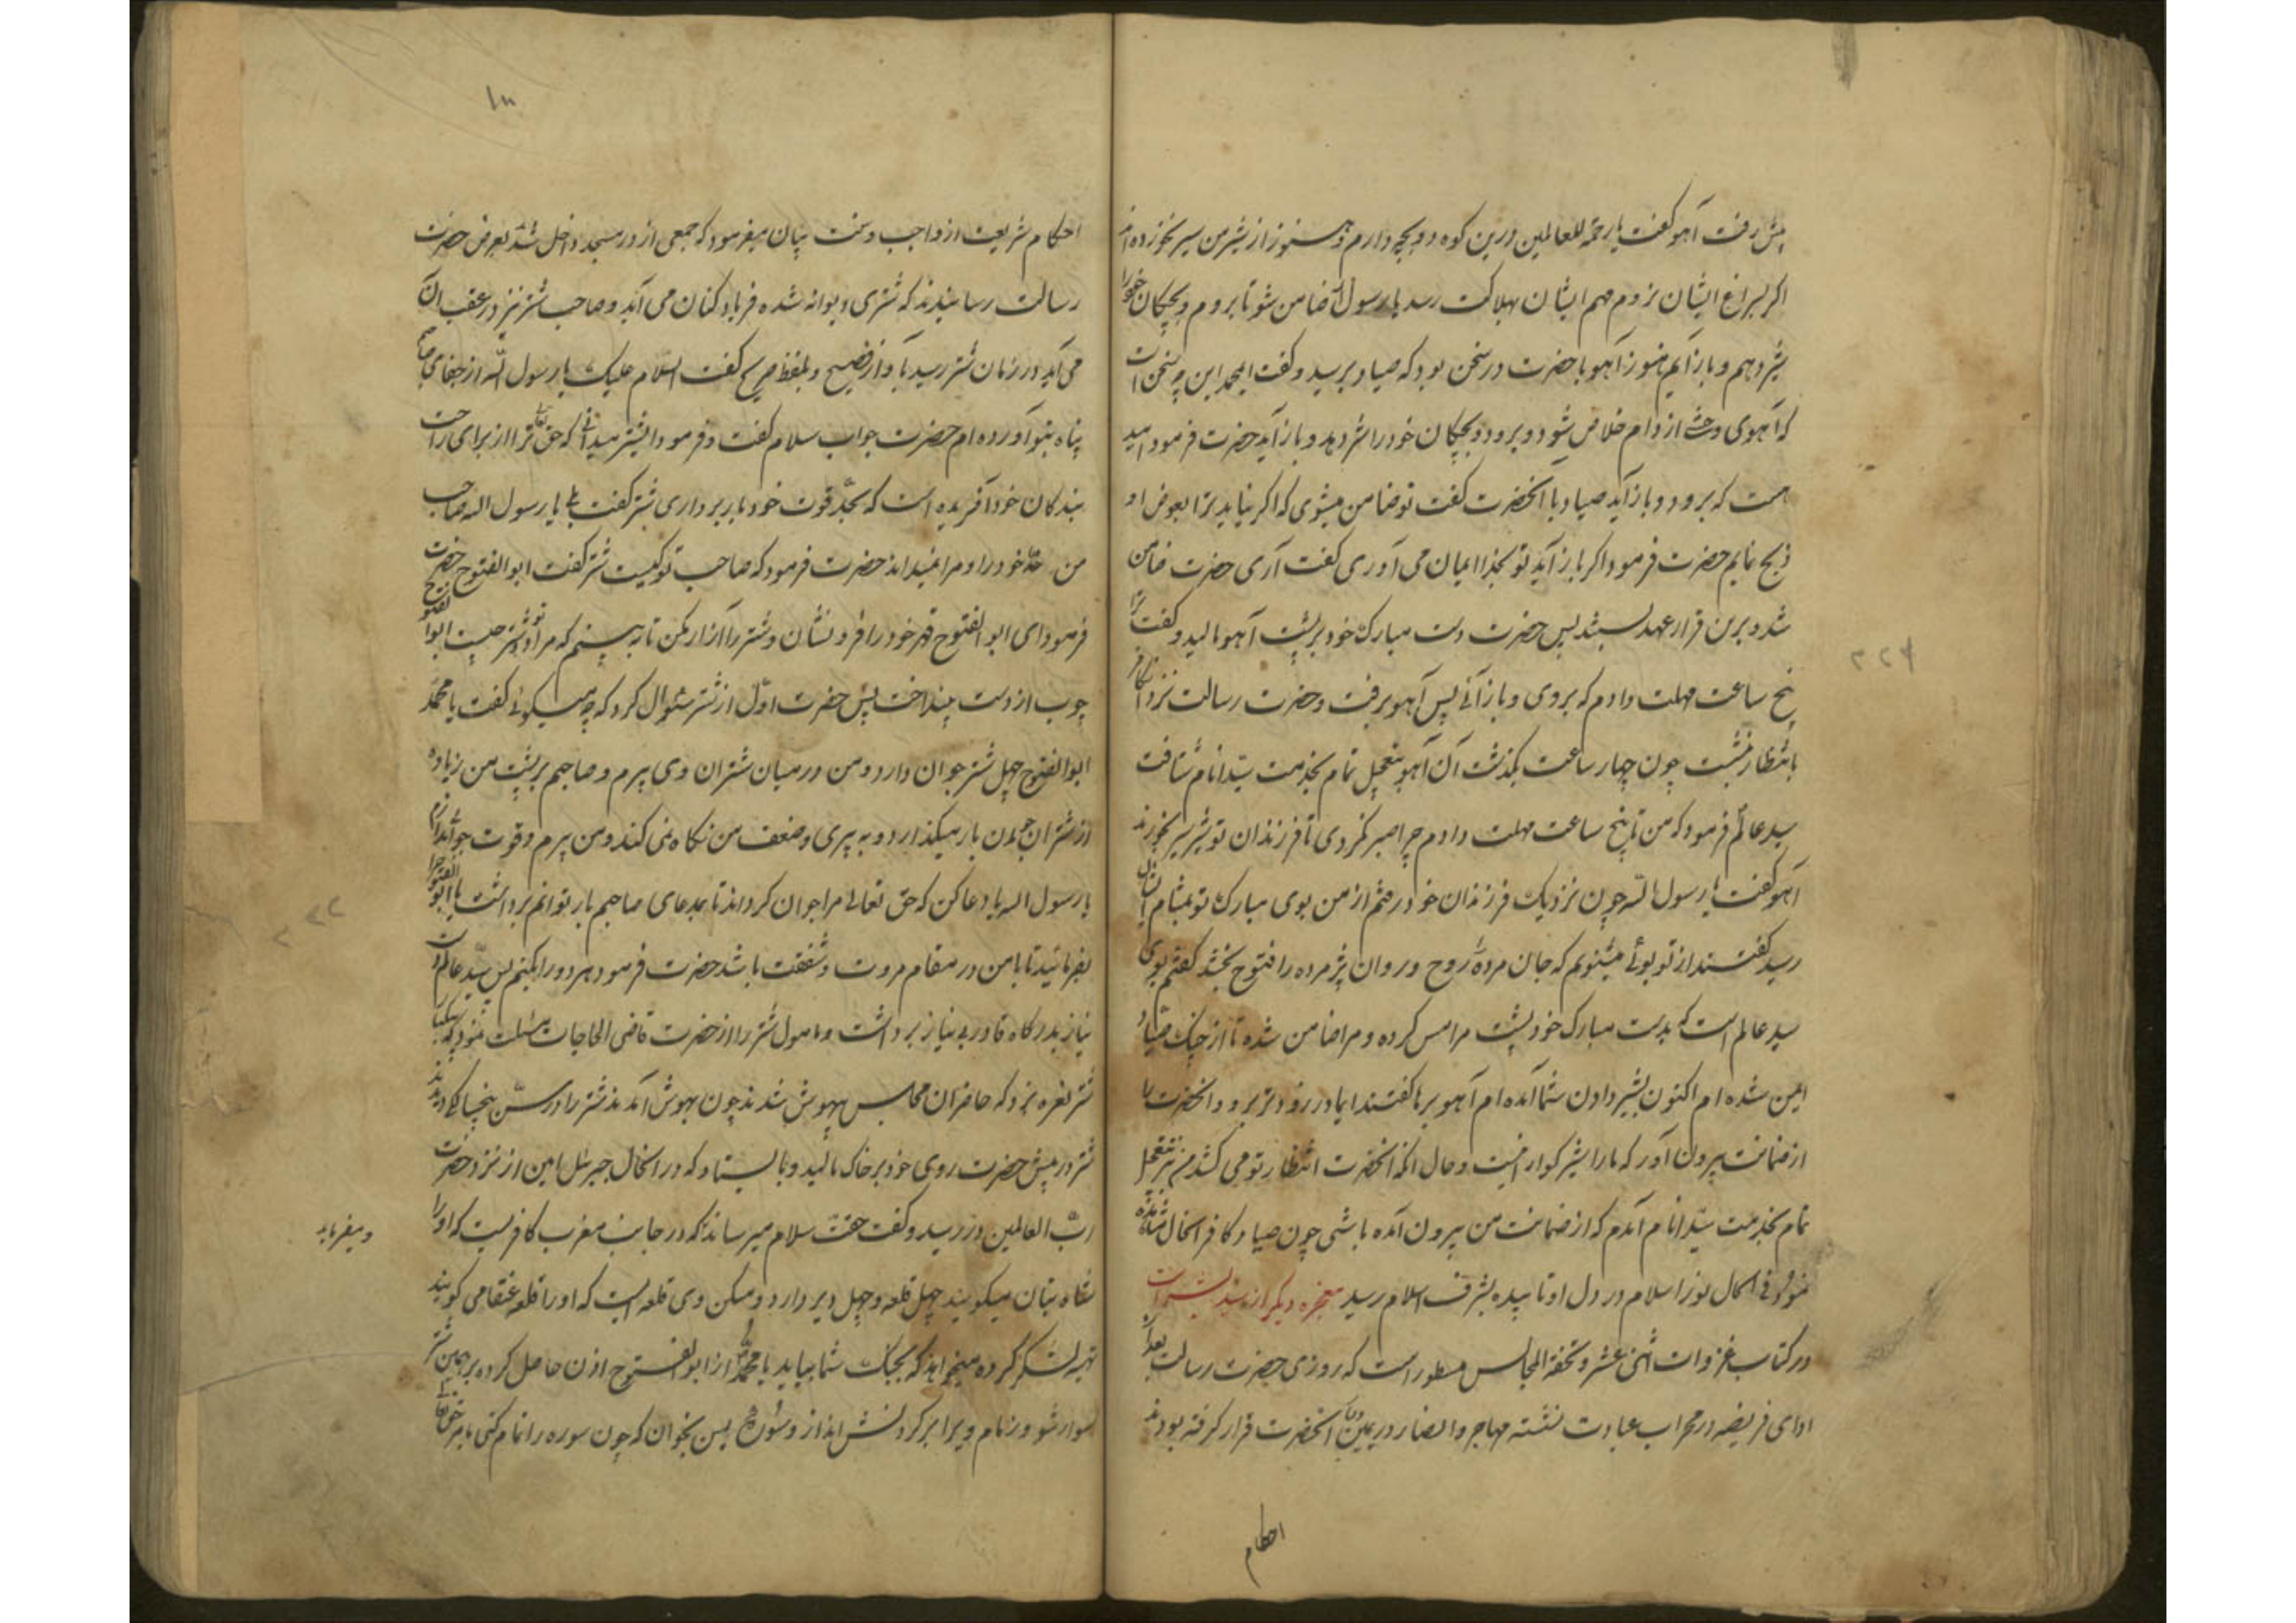 پیش رفت آهو گفت یا رحمة للعالمین درین کوه دو بچه دارم و هنوز از شیر من سیر نخورده اند
اکر بسراغ ایشان نروم هم ایشان بهلاکت رسد یا رسول الله ضامن شو تا بروم و بچکان خود را
شیر دهم و باز آیم هنوز آهو با حضرت در سخن بود که صیاد برسید و گفت ایمحمد این چه سخن است
که آهوی وحشی از دام خلاص شود و برود و بچکان خود را شیر دهد و باز آید حضرت فرمود امید
هست که برود و باز آید صیاد با آنحضرت گفت تو ضامن میشوی که اکر نیاید ترا بعوض او
ذبح نمایم حضرت فرمود اکر باز آید تو بخدا ایمان می آوری گفت آری حضرت ضامن
شد و برین قرار عهد بستند پس حضرت دست مبارک خود بر پشت آهو مالید و گفت ترا
پنج ساعت مهلت دادم که بروی و باز آئی پس آهو برفت و حضرت رسالت نزد دام
بانتظار نشست چون چهار ساعت بگذشت آن آهو بتعجیل تمام بخدمت سید انام شتافت
سید عالم فرمود که من تا پنج ساعت مهلت دادم چرا صبر نکردی تا فرزندان تو شیر سیر بخورند
آهو گفت یا رسول الله چون نزدیک فرزندان خود رفتم از من بوی مبارک تو بمشام ایشان
رسید گفتند از تو بوئی میشنویم که جان مرده را روح و روان پژمرده را فتوح بخشد گفتم بوی
سید عالم است که بدست مبارک خود پشت مرا مس کرده و مرا ضامن شده تا از چنک صیاد
ایمن شده ام اکنون بشیر دادن شما آمده ام آهو بره ها گفتند ایمادر زودتر برو و آنحضرت را
از ضمانت بیرون آور که ما را شیر گوارا نیست و حال آنکه آنحضرت انتظار تو می کشد من نیز بتعجیل
تمام بخدمت سید انام آمدم که از ضمانت من بیرون آمده باشی چون صیاد کافر آنحال مشاهده
نمود فی الحال نور اسلام در دل او تابیده بشرف اسلام رسید معجزه دیکر از سید بشر است
در کتاب غزوات اثنی عشر و تحفة المجالس مسطور است که روزی حضرت رسالت بعد از
ادای فریضه در محراب عبادت نشسته مهاجر و انصار در یمین و یسار آنحضرت قرار کرفته بودند
احکام
۲۲۴
احکام شریعت از واجب و سنت بیان میفرمود که جمعی از در مسجد داخل شدند بعرض حضرت
رسالت رسانیدند که شتری دیوانه شده فریاد کنان می آید و صاحب شتر نیز در عقب آن
می آید در زمان شتر رسید بآواز فصیح و بلفظ صریح گفت السلام علیک یا رسول الله از جفای صاحبم
پناه بتو آورده ام حضرت جواب سلام گفت و فرمود ایشتر میدانی که حق تعالی ترا از برای راحت
بندگان خود آفریده است که بحد قوت خود بار برداری شتر گفت بلی یا رسول الله صاحب
من حد خود را و مرا نمیداند حضرت فرمود که صاحب تو کیست شتر گفت ابو الفتوح حضرت
فرمود ای ابو الفتوح قهر خود را فرو نشان و شتر را آزار مکن تا به بینم که مراد تو و شتر چیست ابو الفتوح
چوب از دست بینداخت پس حضرت اول از شتر سئوال کرد که چه میگوئی گفت یا محمد
ابو الفتوح چهل شتر جوان دارد و من در میان شتران وی پیرم و صاحبم بر پشت من زیاده
از شتران جوان بار میگذارد و به پیری و ضعف من نکاه نمی کند و من پیرم و قوت جوانی ندارم
یا رسول الله یا دعا کن که حق تعالی مرا جوان کرداند تا بمدعای صاحبم بار توانم برداشت یا ابو الفتوح را
بفرمائید تا با من در مقام مروت و شفقت باشد حضرت فرمود هر دو را بکنم پس سید عالم دست
نیاز بدرکاه قادر بی نیاز برداشت و مامول شتر را از حضرت قاضی الحاجات مسئلت نمود که یکبار
شتر نعره بزد که حاضران مجلس بیهوش شدند چون بهوش آمدند شتر را در سن پنجسالکی دیدند
شتر در پیش حضرت روی خود بر خاک مالید و بایستاد که در آنحال جبرئیل امین از نزد حضرت
رب العالمین در رسید و گفت حقت سلام میرساند که در جانب مغرب کافریست که او را
و میفرماید
شاه بتان میکویند چهل قلعه و چهل دیر دارد و مسکن وی قلعه ایست که او را قلعه عنقا می کویند
تهیه لشکر کرده میخواهد که بجنگ شما بیاید یا محمد از ابو الفتوح اذن حاصل کرده بر همین شتر
سوار شو و زمام ویرا بر کردنش انداز و سوره یس بخوان که چون سوره را تمام کنی بامر حق تعالی